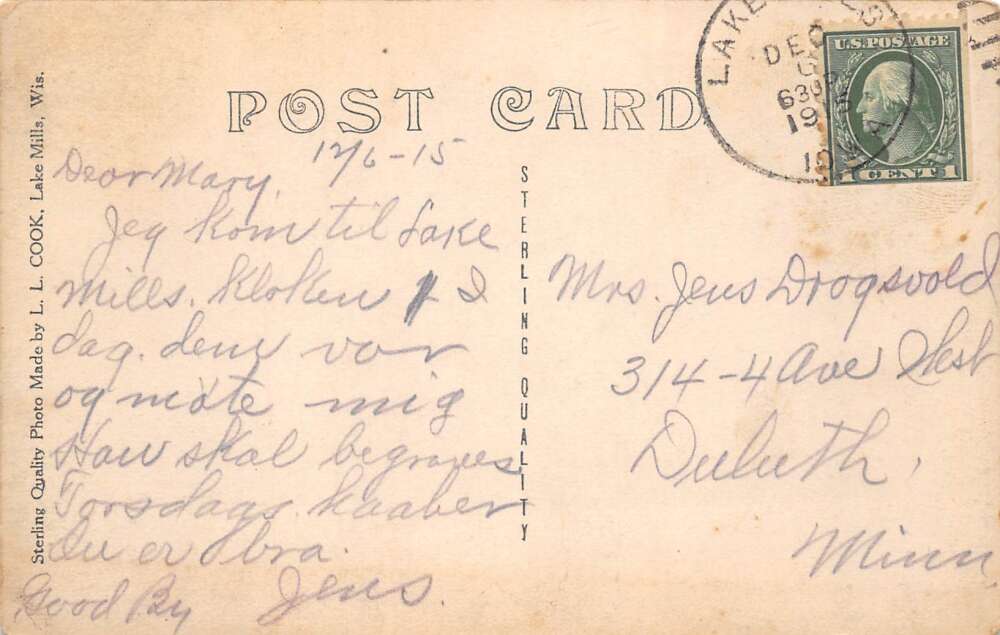 POST CARD
LAKE
DEC
630P
19
U.S. POSTAGE
1 CENT 1
Sterling Quality Photo Made by L. L. COOK, Lake Mills, Wis.
STERLING QUALITY
12/6-15
Dear Mary.
Jeg kom til Lake
Mills. Kloken 1 I
dag. dem var
og møte mig
Han skal begraves
Torsdag. haaber
du er bra.
Good By Jens.
Mrs. Jens Drogsvold
314-4 Ave West
Duluth,
Minn